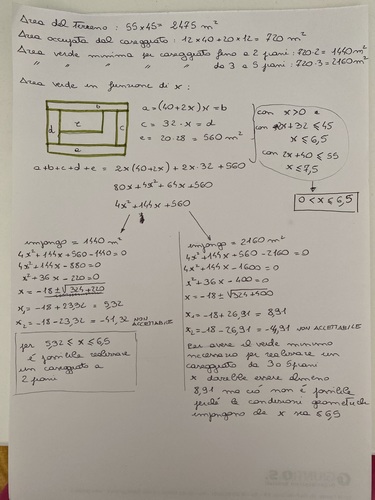 Area del terreno : 55×45 = 2475 m²
Area occupata dal caseggiato : 12×40+20×12 = 720 m²
Area verde minima per caseggiato fino a 2 piani : 720·2 = 1440 m²
" " " " da 3 a 5 piani : 720·3 = 2160 m²
Area verde in funzione di x :
b
d e c
a
a = (40+2x)x = b
c = 32·x = d
e = 20·28 = 560 m²
con x>0 e
con 2x+32 ≤ 45
x ≤ 6,5
con 2x+40 ≤ 55
x ≤ 7,5
0 < x ≤ 6,5
a+b+c+d+e = 2x(40+2x) + 2x·32 + 560
80x+4x²+64x+560
4x²+144x+560
impongo = 1440 m²
4x²+144x+560-1440=0
4x²+144x-880=0
x²+36x-220=0
x = -18±√324+220
x₁ = -18+23,32 = 5,32
x₂ = -18-23,32 = -41,32 NON ACCETTABILE
per 5,32 ≤ x ≤ 6,5
è possibile realizzare
un caseggiato a
2 piani
impongo = 2160 m²
4x²+144x+560-2160=0
4x²+144x-1600=0
x²+36x-400=0
x = -18±√324+400
x₁ = -18+26,91 = 8,91
x₂ = -18-26,91 = -44,91 NON ACCETTABILE
Per avere il verde minimo
necessario per realizzare un
caseggiato da 3 o 5 piani
x dovrebbe essere almeno
8,91 ma ciò non è possibile
perché le condizioni geometriche
impongono che x sia ≤ 6,5